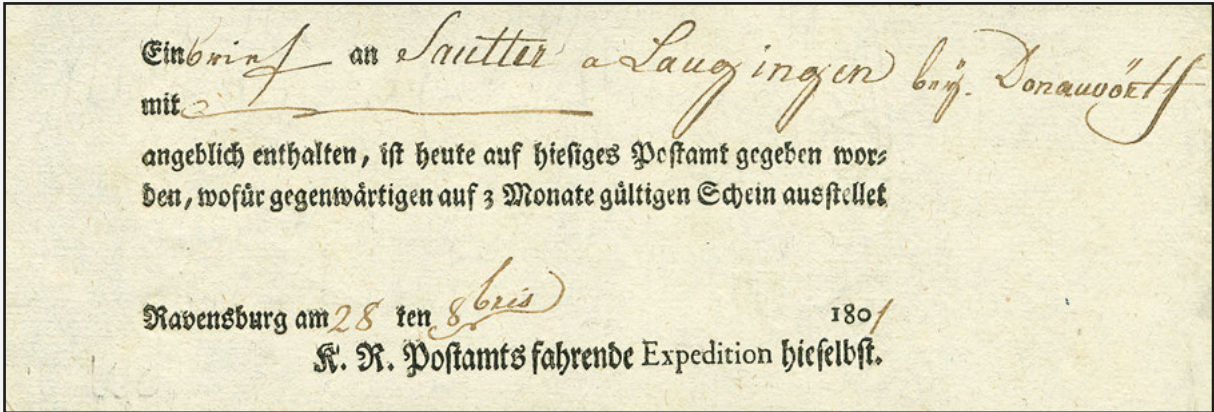 Ein brief an Sautter a Laugingen beÿ. Donauvört
mit
angeblich enthalten, ist heute auf hiesiges Postamt gegeben wor-
den, wofür gegenwärtigen auf 3 Monate gültigen Schein ausstellet
Ravensburg am 28 ten 8bris 1801
K. R. Postamts fahrende Expedition hieselbst.